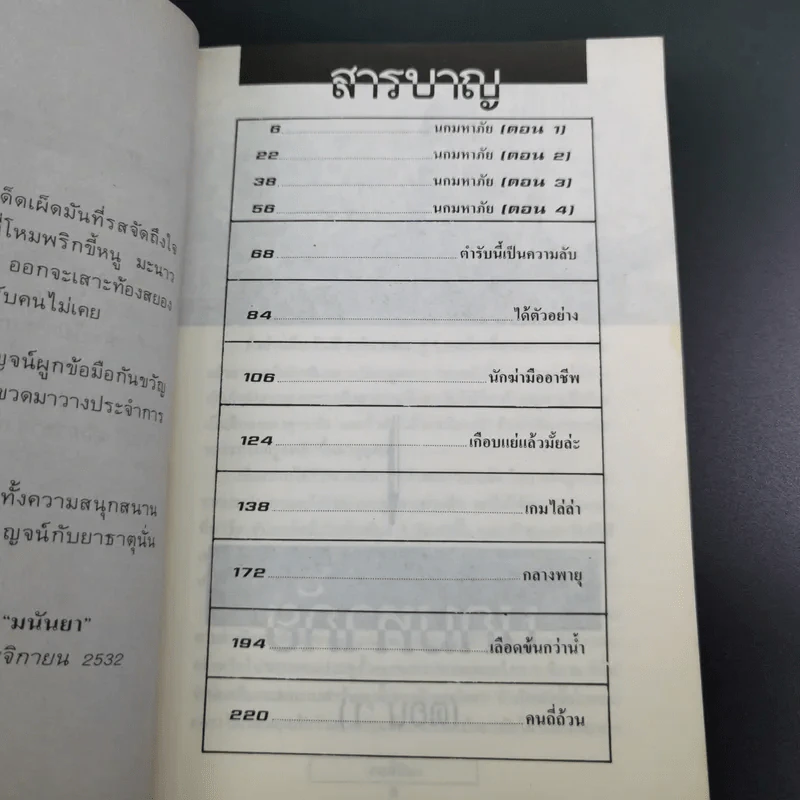 ด็ดเผ็ดมันที่รสจัดถึงใจ
โหมพริกขี้หนู มะนาว
ออกจะเสาะท้องสยอง
บคนไม่เคย
ญจน์ผูกข้อมือกันขวัญ
ขวดมาวางประจำการ
ทั้งความสนุกสนาน
ญจน์กับยาธาตุนั่น
"มนันยา"
จิกายน 2532
สารบาญ
6 นกมหาภัย (ตอน 1)
22 นกมหาภัย (ตอน 2)
38 นกมหาภัย (ตอน 3)
56 นกมหาภัย (ตอน 4)
68 ตำรับนี้เป็นความลับ
84 ได้ตัวอย่าง
106 นักฆ่ามืออาชีพ
124 เกือบแย่แล้วมั้ยล่ะ
138 เกมไล่ล่า
172 กลางพายุ
194 เลือดข้นกว่าน้ำ
220 คนถี่ถ้วน